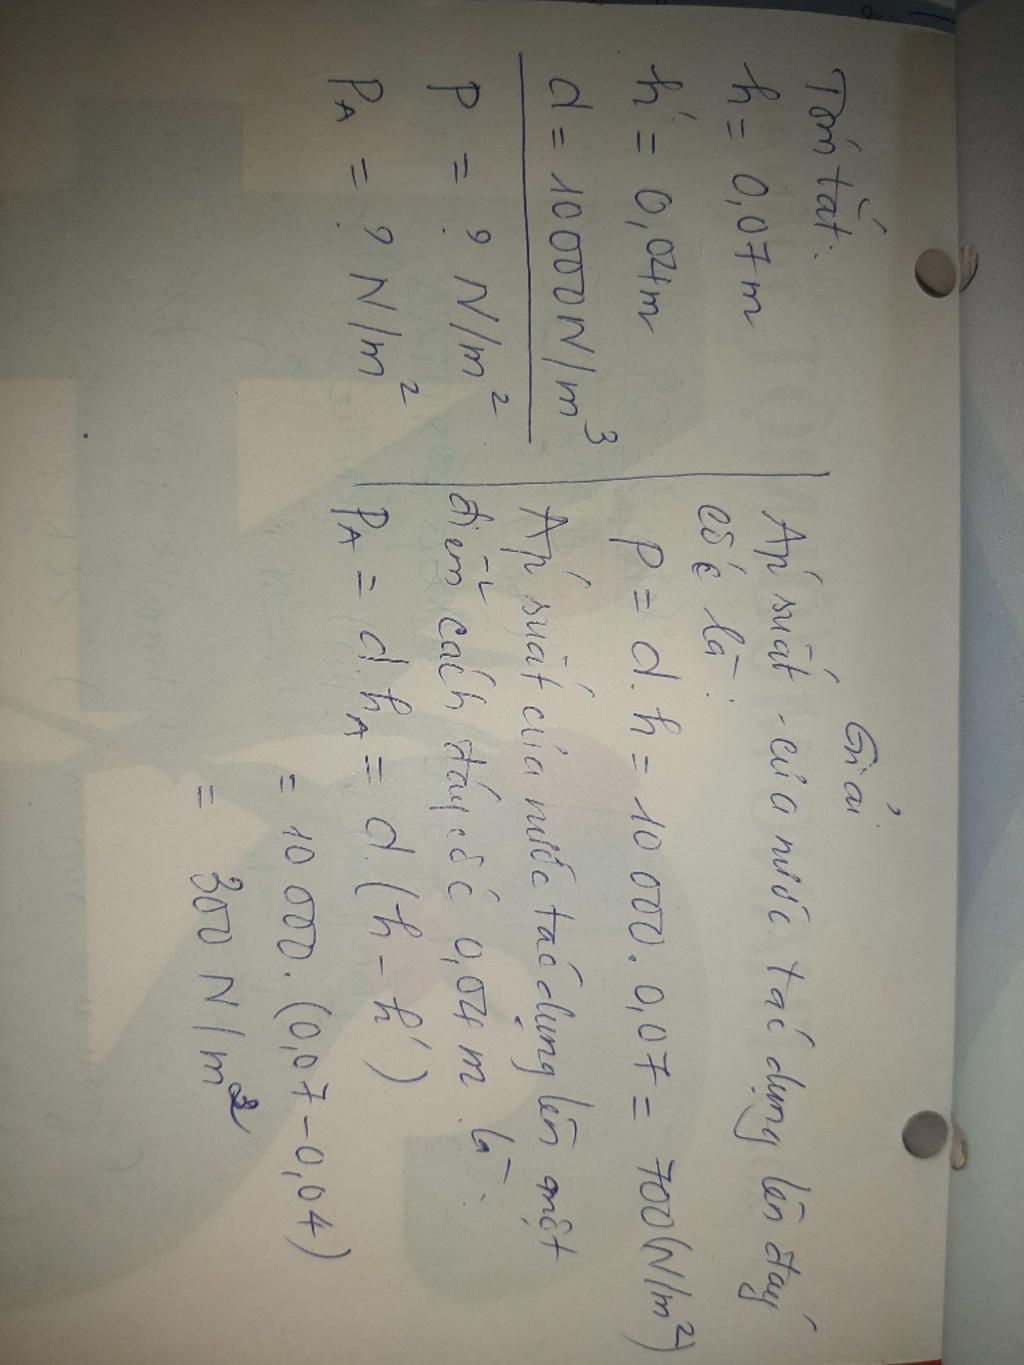 Tóm tắt:
h = 0,07m
h' = 0,04m
d = 10 000N/m³
P = ? N/m²
PA = ? N/m²
Giải
Áp suất của nước tác dụng lên đáy
cốc là:
P = d.h = 10 000.0,07 = 700(N/m²)
Áp suất của nước tác dụng lên một
điểm cách đáy cốc 0,04m là:
PA = d.hA = d.(h-h')
= 10 000.(0,07-0,04)
= 300 N/m²